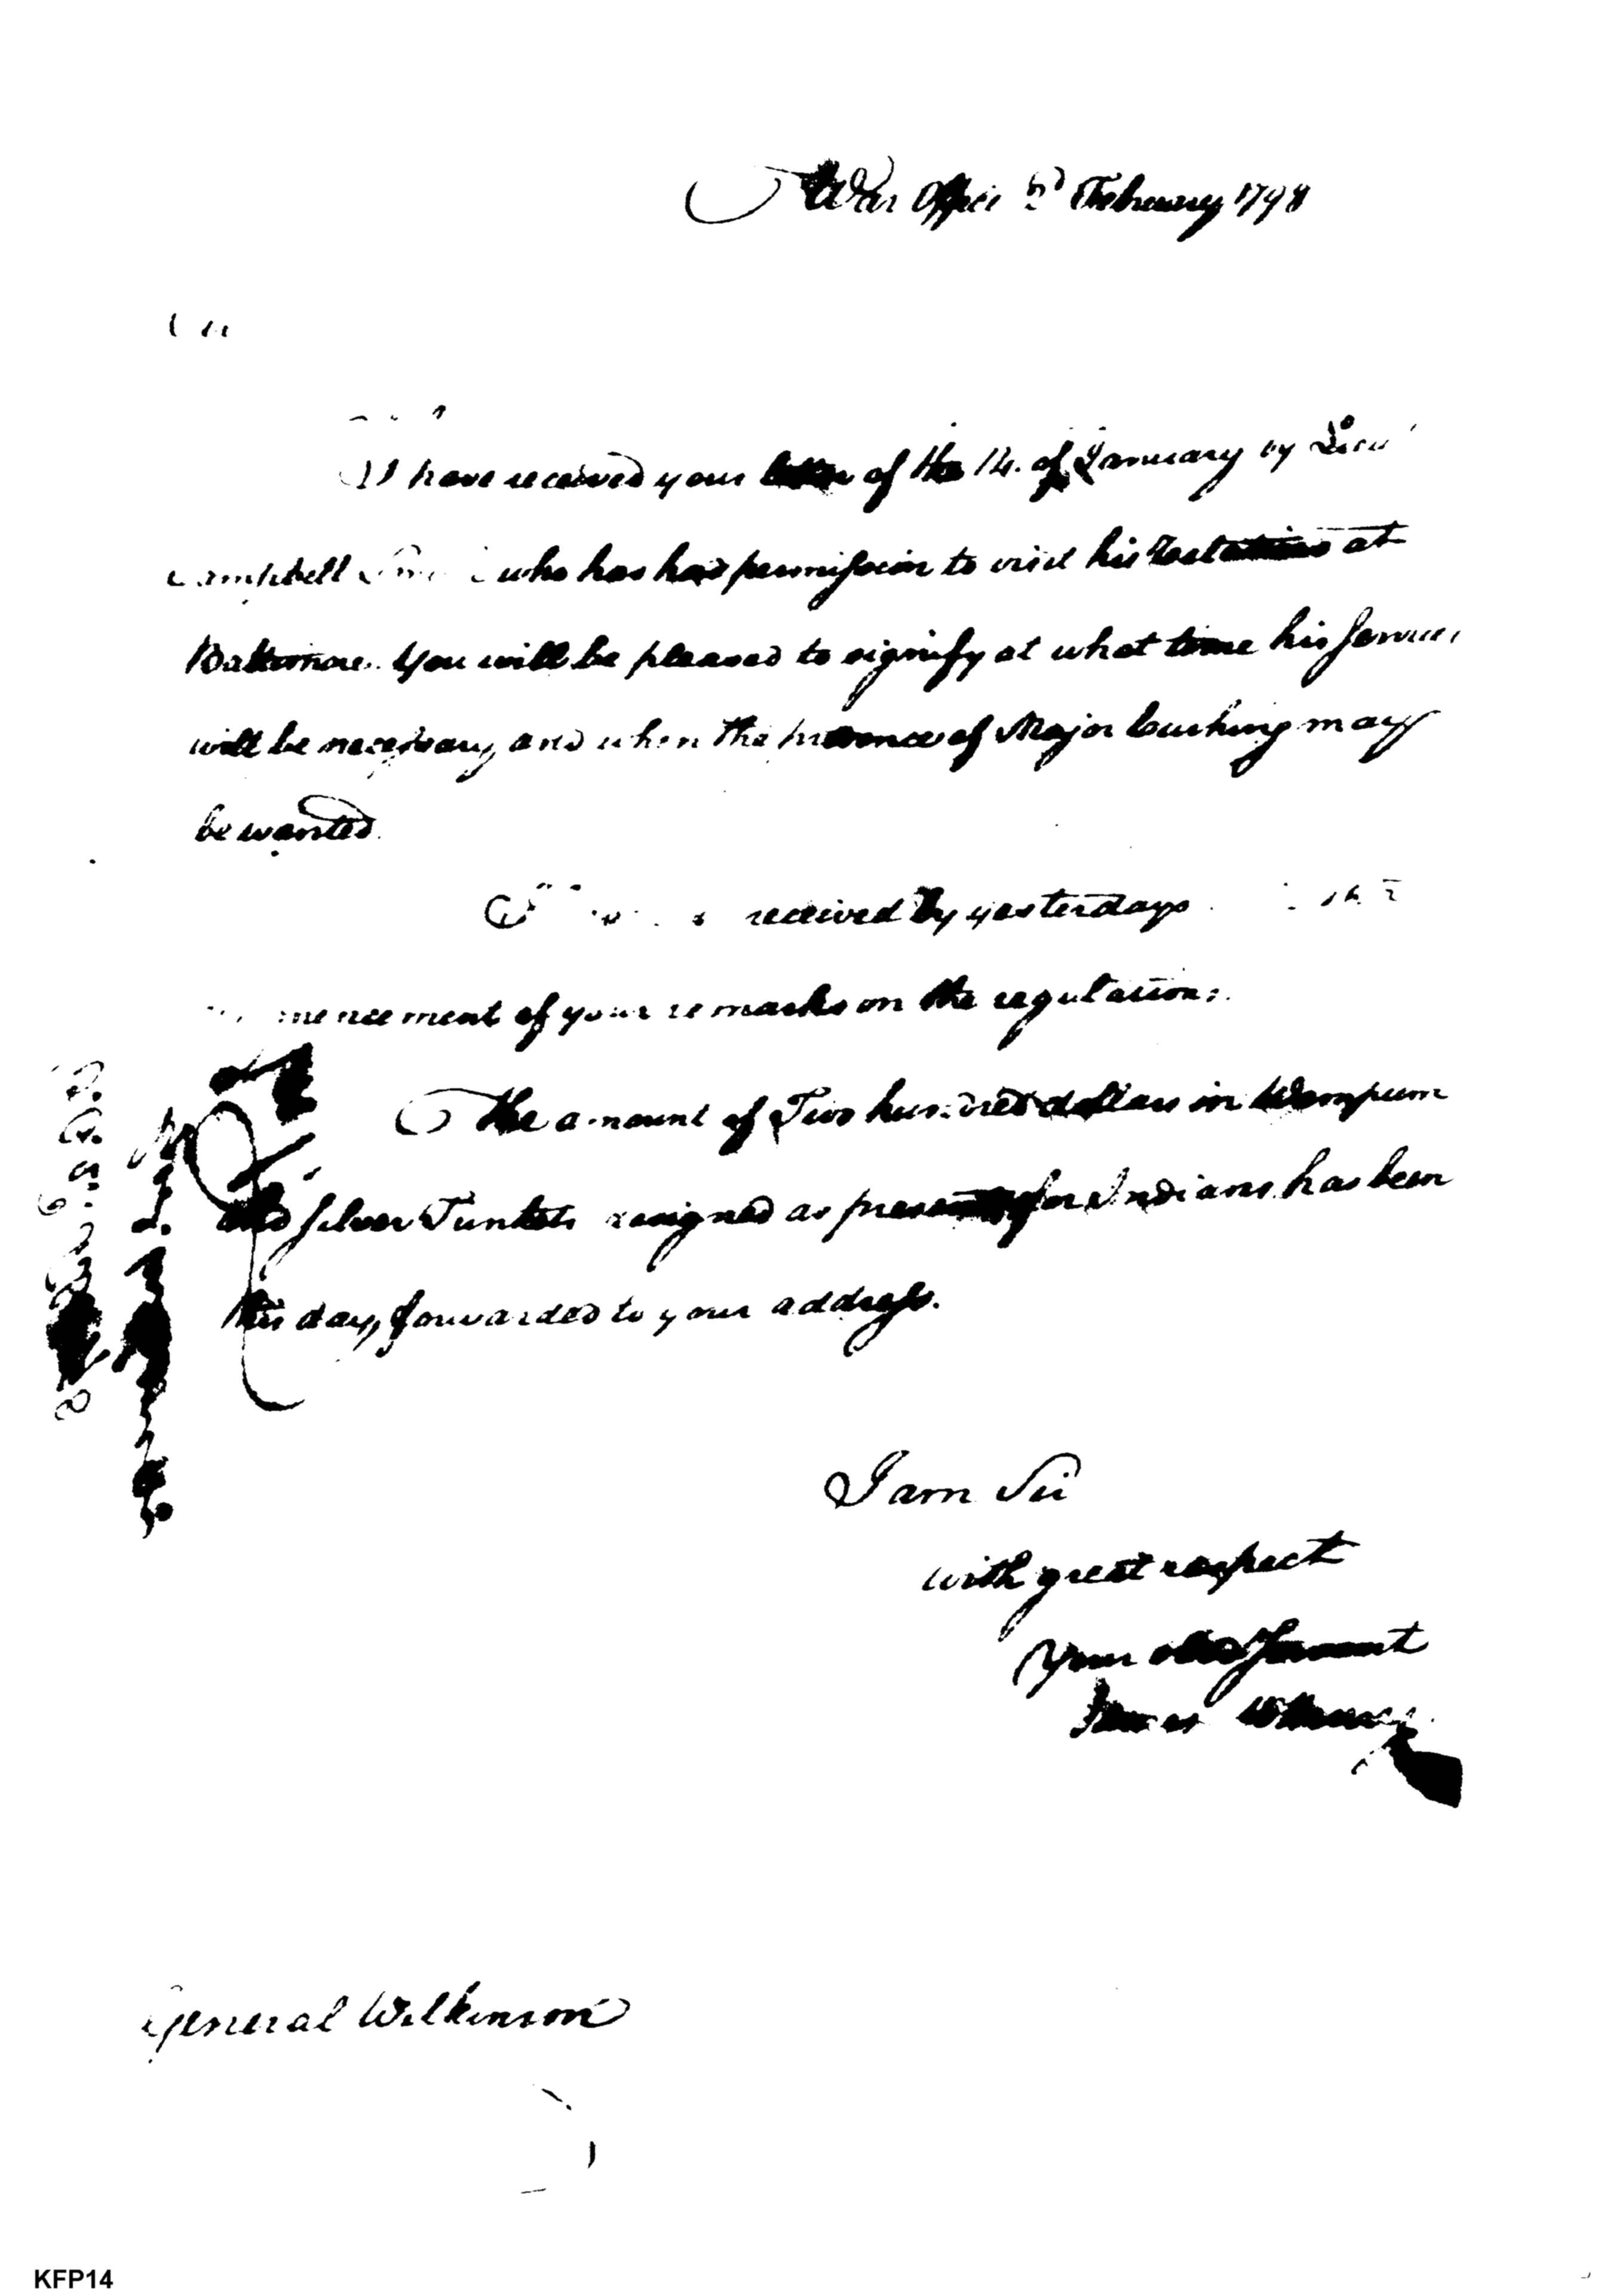 War Office February 1798
I have received your letter of the 14. of January by Lieut
Campbell who has had permission to visit his Relations at
Baltimore. You will be pleased to signify at what time his services
will be necessary, and when the presence of Major Cushing may
be wanted.
received by yesterdays
mencement of your remarks on the regulations.
The amount of Two hundred dollars in Wampum
and Silver Tunkets designed as presents for Indians has been
this day, forwarded to your address.
I am Sir
with great respect
Your obed Servant
James McHenry
General Wilkinson
KFP14